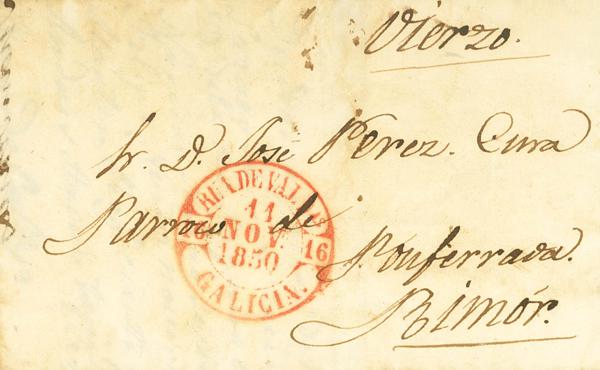 Vierzo.
Sr. D. José Perez. Cura
Parroco de
Ponferrada.
Rimór.
RUA DE VAL
11
NOV.
1850
16
GALICIA.